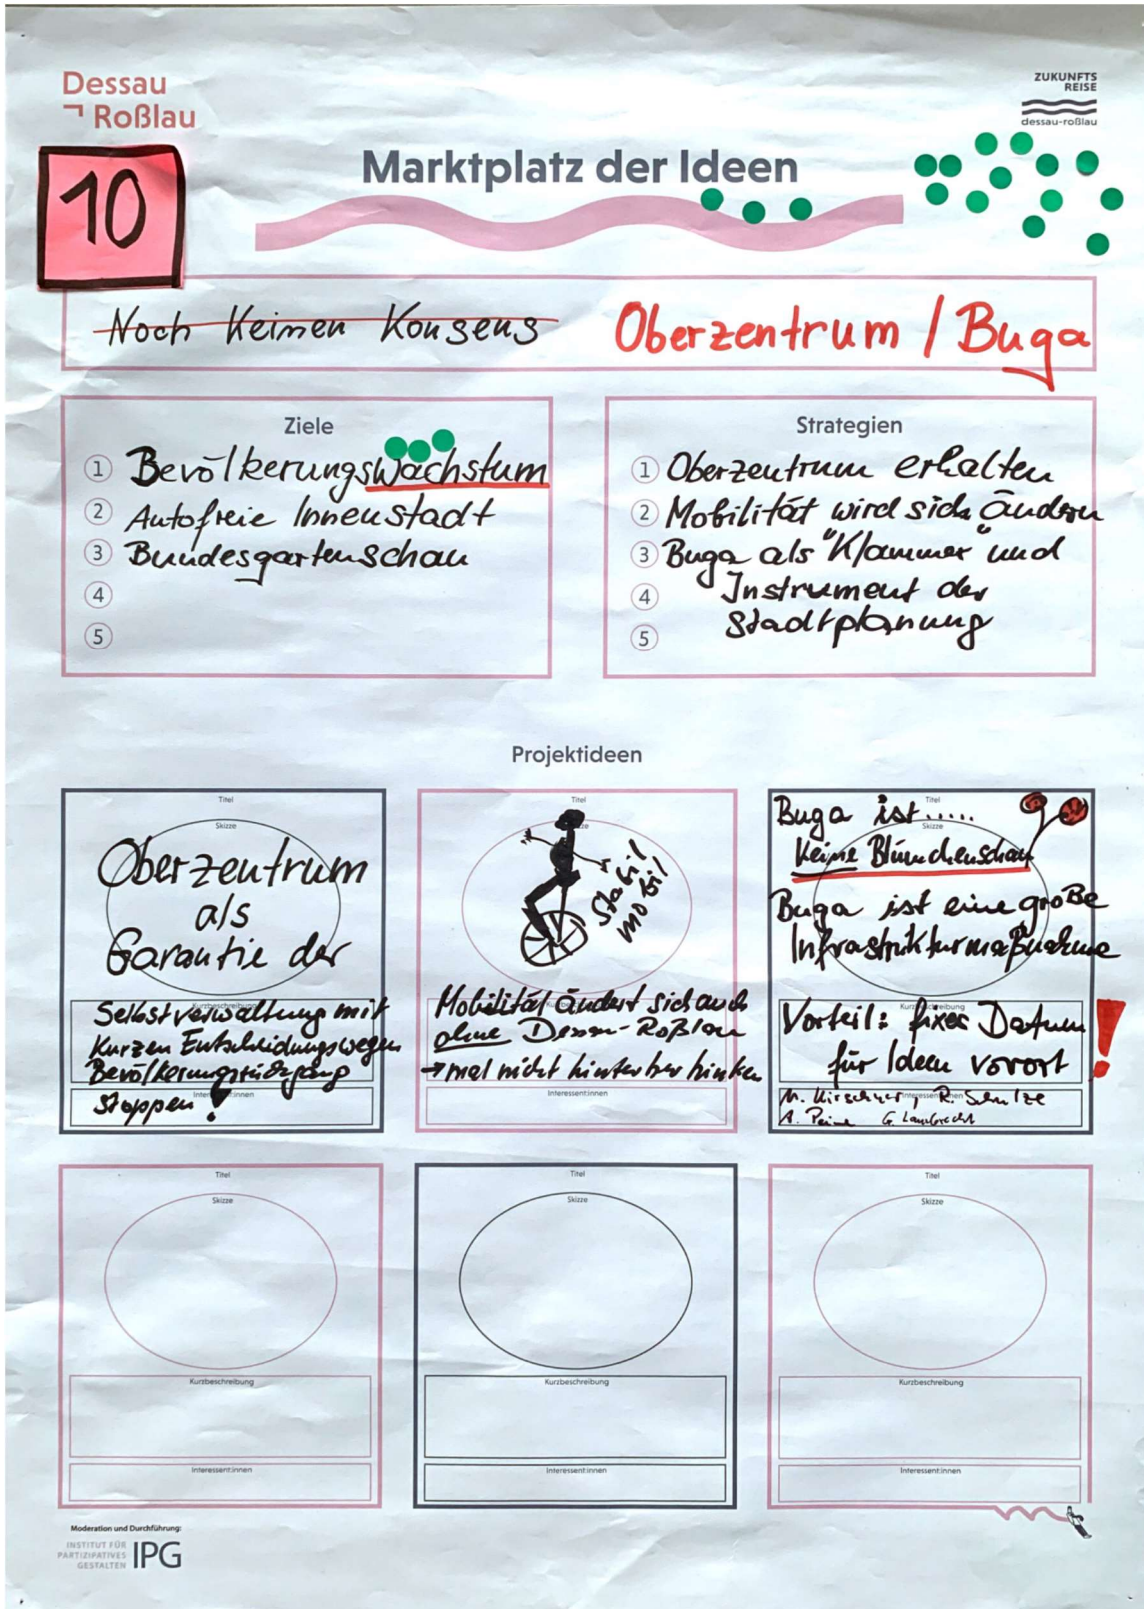 Dessau
Roßlau
ZUKUNFTS
REISE
dessau-roßlau
10
Marktplatz der Ideen
Noch Keinen Konsens
Oberzentrum / Buga
Ziele
1 Bevölkerungswachstum
2 Autofreie Innenstadt
3 Bundesgartenschau
4
5
Strategien
1 Oberzentrum erhalten
2 Mobilität wird sich ändern
3 Buga als "Klammer" und
4 Instrument der
5 Stadtplanung
Projektideen
Titel
Skizze
Oberzentrum
als
Garantie der
Kurzbeschreibung
Selbstverwaltung mit
Kurzen Entscheidungswegen
Bevölkerungsrückgang
Interessent:innen
Stoppen!
Titel
stabil
mobil
Mobilität ändert sich auch
ohne Dessau-Roßlau
→ mal nicht hinterher hinken
Interessent:innen
Titel
Buga ist.....
Skizze
Keine Blümchenschau
Buga ist eine große
Infrastrukturmaßnahme
Kurzbeschreibung
Vorteil: fixes Datum
für Ideen vorort !
Interessent:innen
M. Kirschner, R. Schulze
A. G. Lambrecht
Titel
Skizze
Kurzbeschreibung
Interessent:innen
Titel
Skizze
Kurzbeschreibung
Interessent:innen
Titel
Skizze
Kurzbeschreibung
Interessent:innen
Moderation und Durchführung:
INSTITUT FÜR
PARTIZIPATIVES
GESTALTEN
IPG